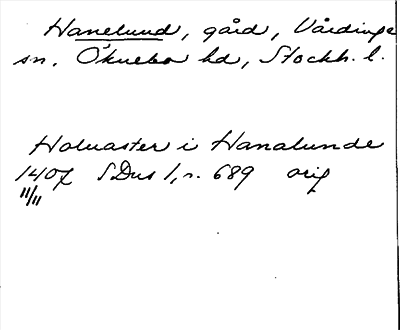 Hanelund, gård, Vårdinge
sn, Öknebo hd, Stockh. l.
Holuaster i Hanalunde
1407 SDns 1, n. 689 orig
11/11